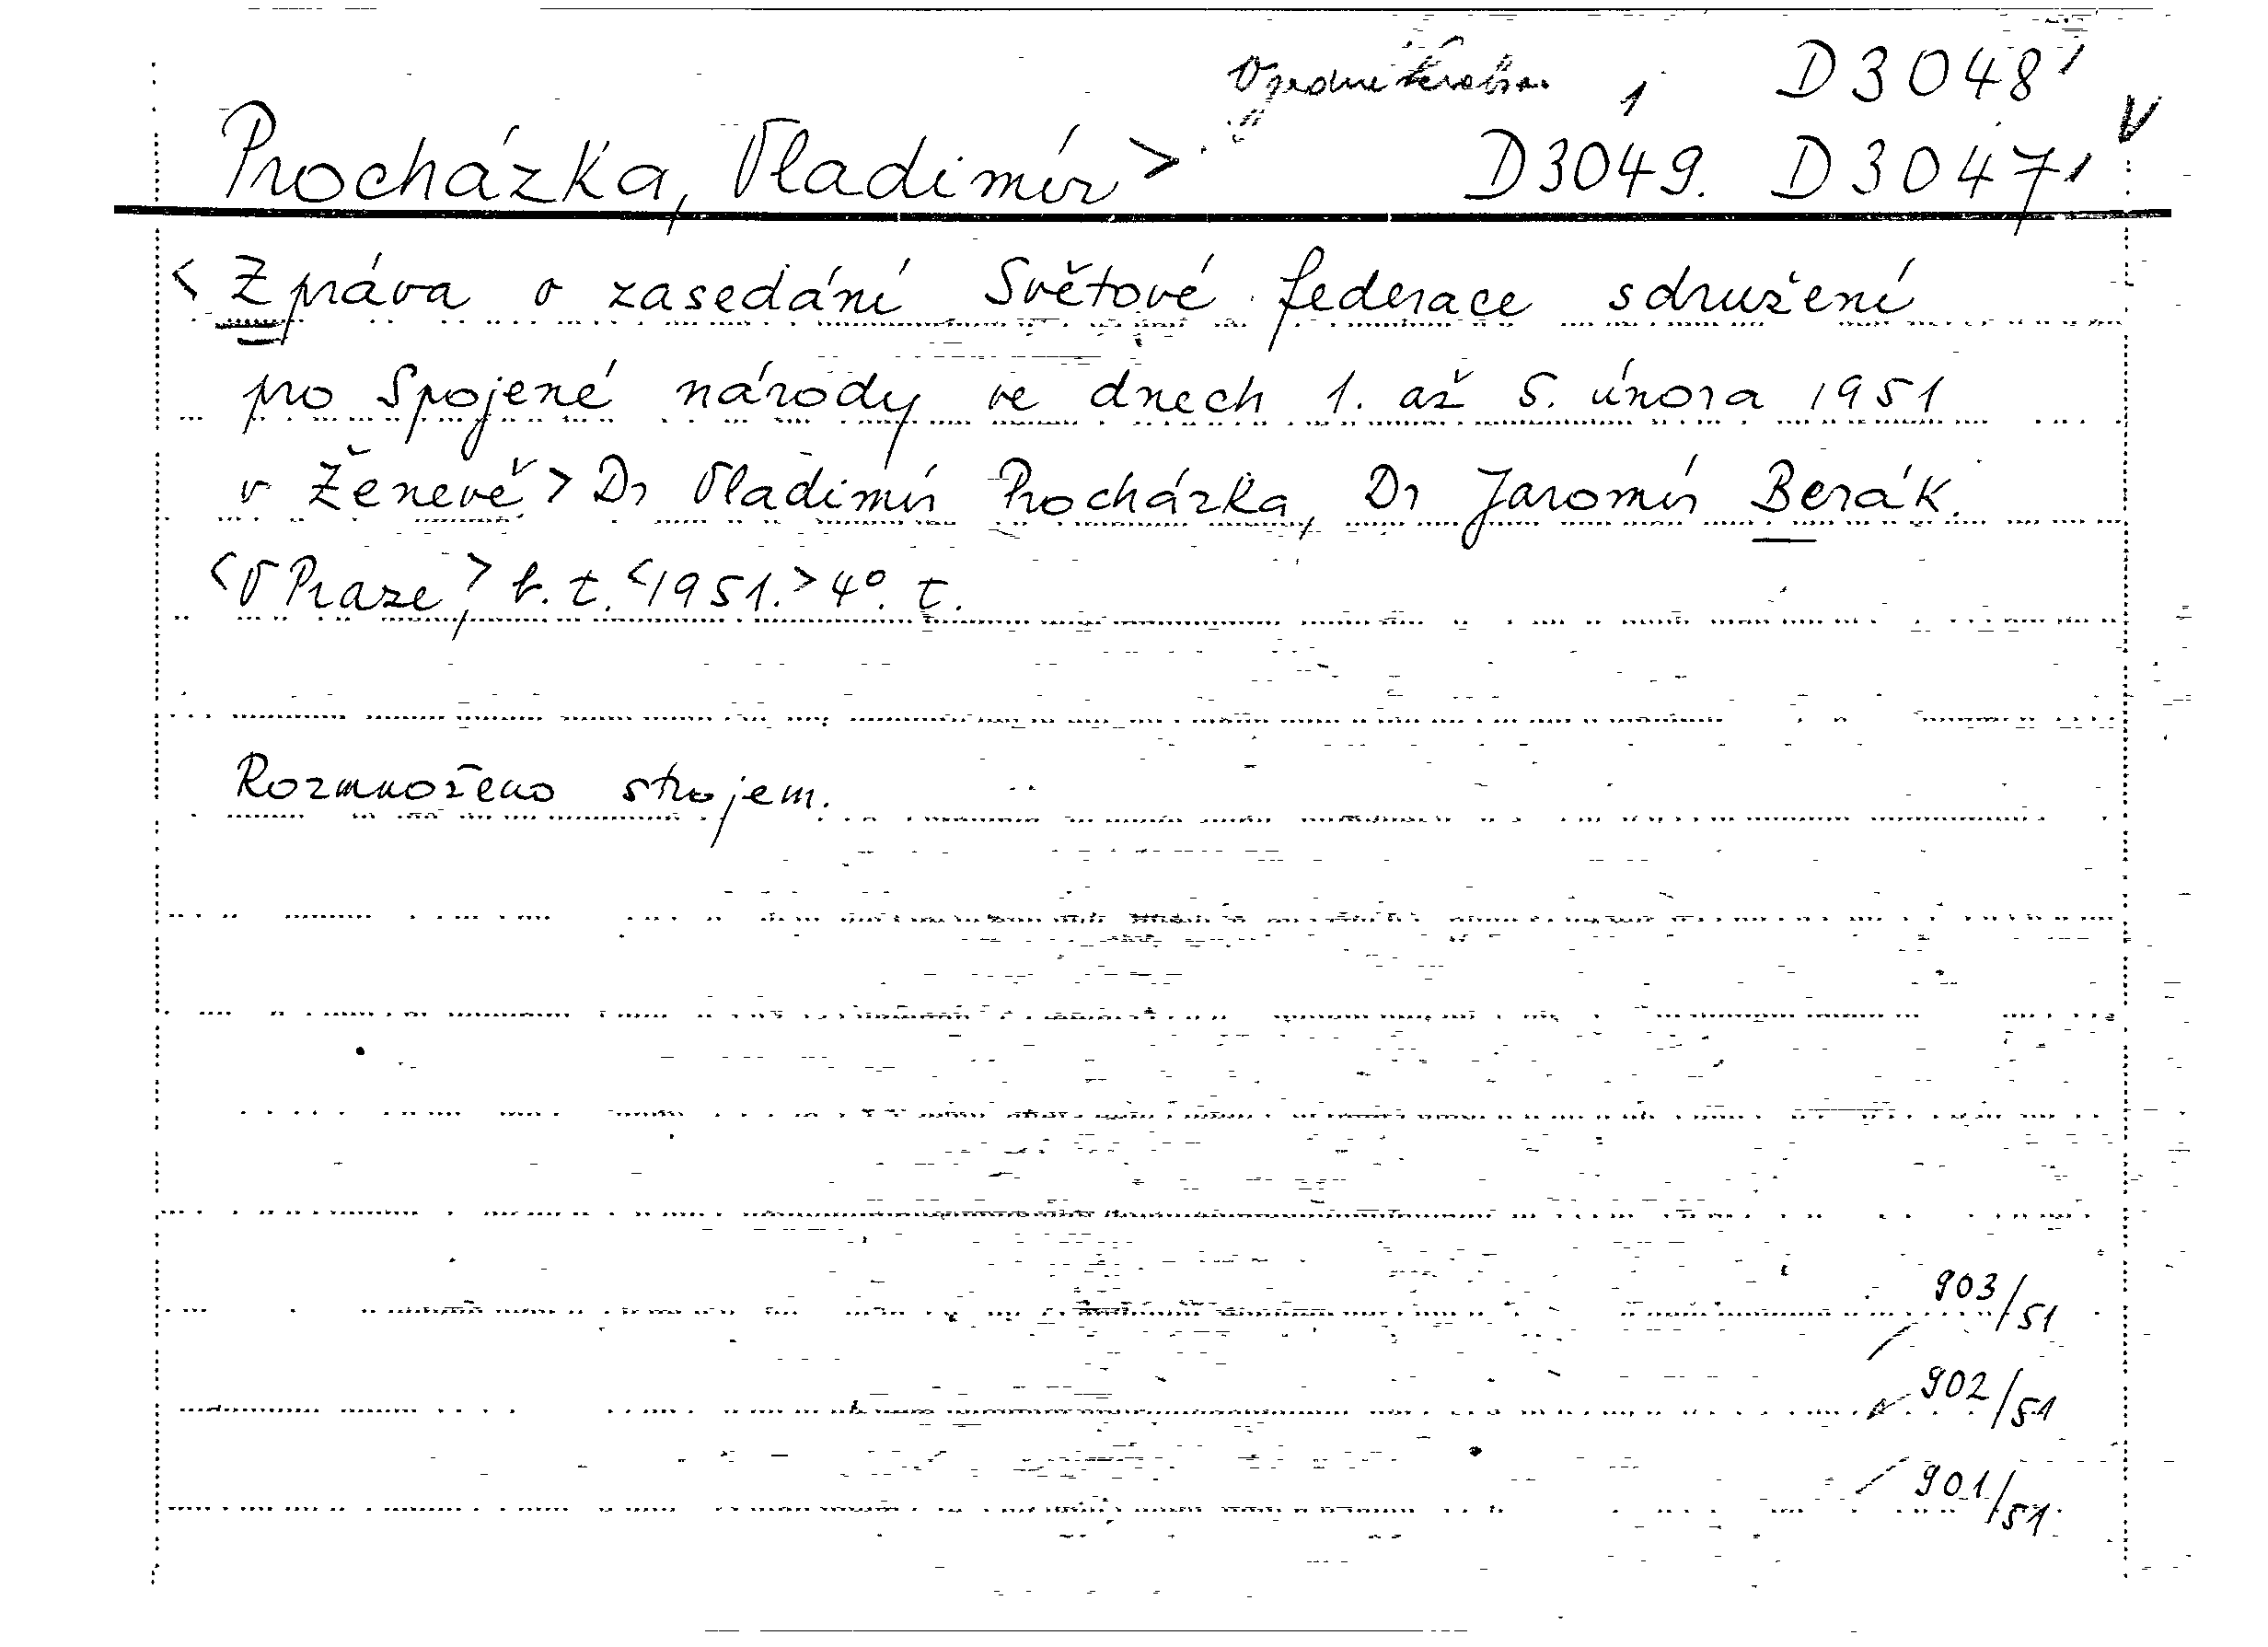 D3048
Procházka, Vladimír> D3049. D3047
<Zpráva o zasedání Světové federace sdružení
pro Spojené národy ve dnech 1. až 5. února 1951
v Ženevě.> Dr Vladimír Procházka, Dr Jaromír Berák.
<V Praze,> b. t. <1951.> 4°. t.
Rozmnoženo strojem.
903/51
902/51
901/51